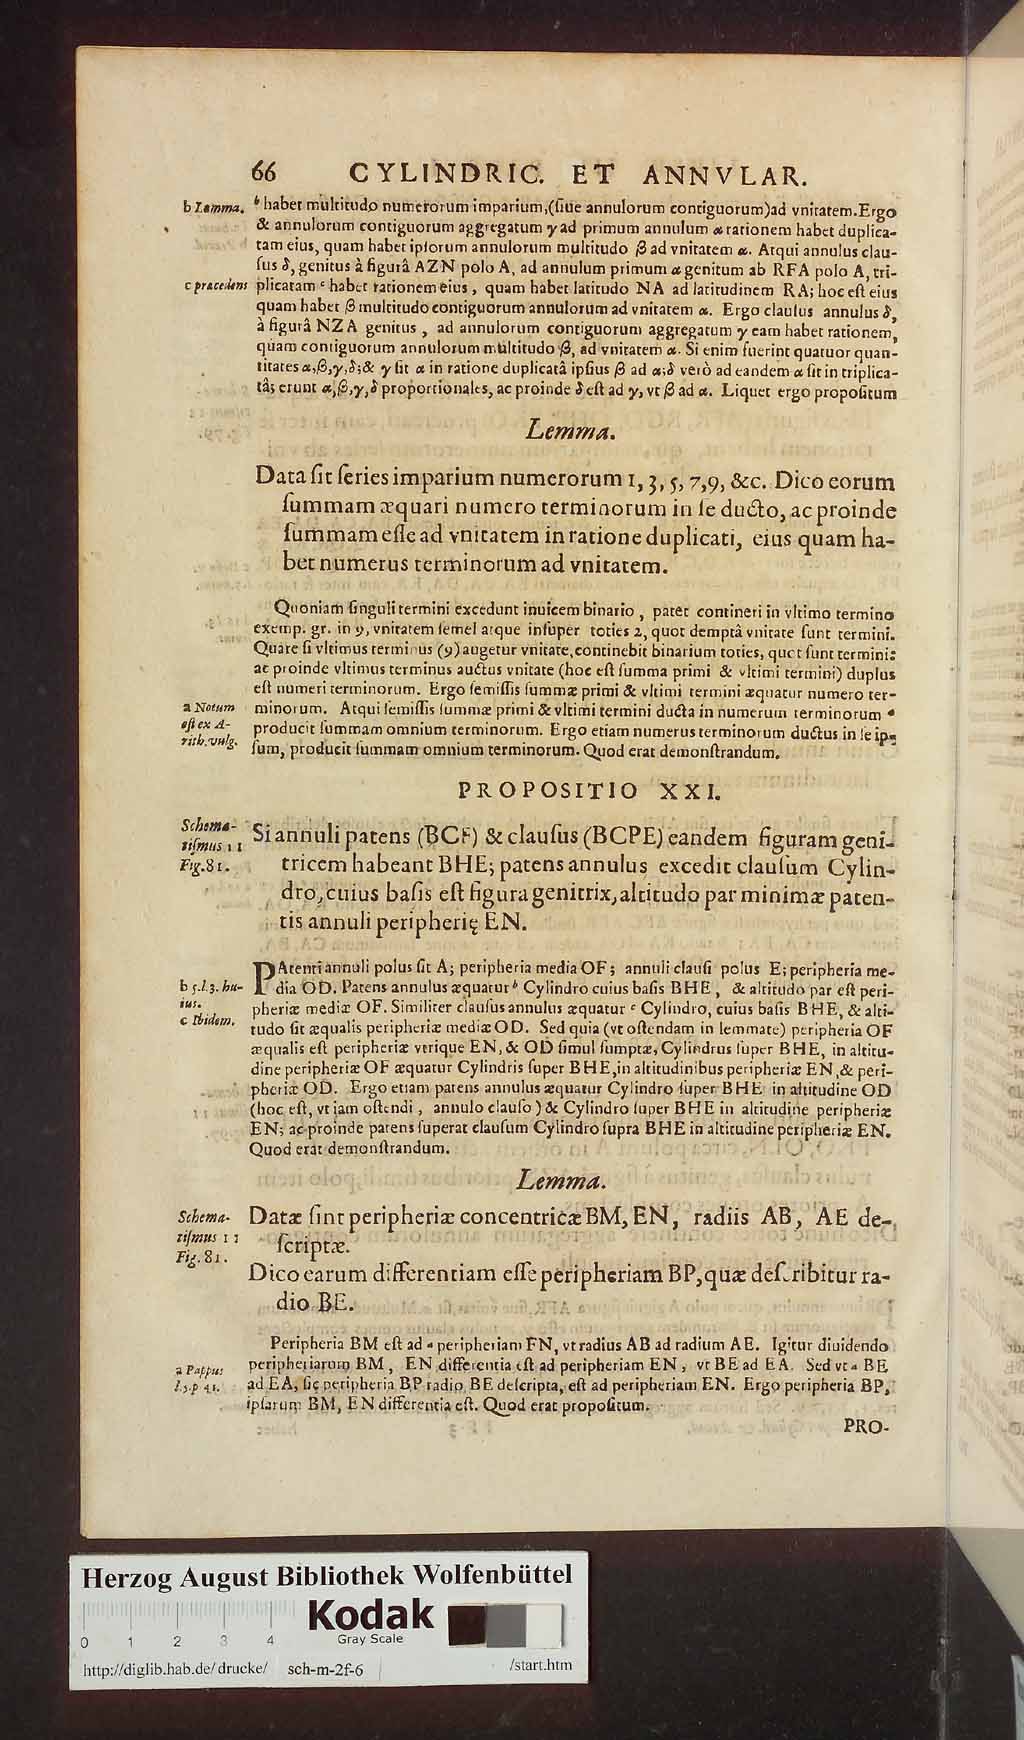 66 CYLINDRIC. ET ANNVLAR.
b Lemma.
ᵇ habet multitudo numerorum imparium,(ſiue annulorum contiguorum)ad vnitatem.Ergo
& annulorum contiguorum aggregatum γ ad primum annulum α rationem habet duplica-
tam eius, quam habet ipſorum annulorum multitudo β ad vnitatem α. Atqui annulus clau-
ſus δ, genitus à figurâ AZN polo A, ad annulum primum α genitum ab RFA polo A, tri-
c præcedens
plicatam ᶜ habet rationem eius, quam habet latitudo NA ad latitudinem RA; hoc eſt eius
quam habet β multitudo contiguorum annulorum ad vnitatem α. Ergo clauſus annulus δ,
à figurâ NZA genitus, ad annulorum contiguorum aggregatum γ eam habet rationem,
quàm contiguorum annulorum multitudo β, ad vnitatem α. Si enim fuerint quatuor quan-
titates α,β,γ,δ;& γ ſit α in ratione duplicatâ ipſius β ad α;δ verò ad eandem α ſit in triplica-
tâ; erunt α,β,γ,δ proportionales, ac proinde δ eſt ad γ, vt β ad α. Liquet ergo propoſitum
Lemma.
Data ſit ſeries imparium numerorum 1, 3, 5, 7,9, &c. Dico eorum
ſummam æquari numero terminorum in ſe ducto, ac proinde
ſummam eſſe ad vnitatem in ratione duplicati, eius quam ha-
bet numerus terminorum ad vnitatem.
Quoniam ſinguli termini excedunt inuicem binario, patet contineri in vltimo termino
exemp. gr. in 9, vnitatem ſemel atque inſuper toties 2, quot demptâ vnitate ſunt termini.
Quare ſi vltimus terminus (9) augetur vnitate,continebit binarium toties, quot ſunt termini:
ac proinde vltimus terminus auctus vnitate (hoc eſt ſumma primi & vltimi termini) duplus
eſt numeri terminorum. Ergo ſemiſſis ſummæ primi & vltimi termini æquatur numero ter-
a Notum
eſt ex A-
rith.vulg.
minorum. Atqui ſemiſſis ſummæ primi & vltimi termini ducta in numerum terminorum ᵃ
producit ſummam omnium terminorum. Ergo etiam numerus terminorum ductus in ſe ip-
ſum, producit ſummam omnium terminorum. Quod erat demonſtrandum.
PROPOSITIO XXI.
Schema-
tiſmus 11
Fig.81.
Si annuli patens (BCF) & clauſus (BCPE) eandem figuram geni-
tricem habeant BHE; patens annulus excedit clauſum Cylin-
dro, cuius baſis eſt figura genitrix, altitudo par minimæ paten-
tis annuli peripherię EN.
PAtenti annuli polus ſit A; peripheria media OF; annuli clauſi polus E; peripheria me-
b 5.l.3. hu-
ius.
c Ibidem.
dia OD. Patens annulus æquatur ᵇ Cylindro cuius baſis BHE, & altitudo par eſt peri-
pheriæ mediæ OF. Similiter clauſus annulus æquatur ᶜ Cylindro, cuius baſis BHE, & alti-
tudo ſit æqualis peripheriæ mediæ OD. Sed quia (vt oſtendam in lemmate) peripheria OF
æqualis eſt peripheriæ vtrique EN, & OD ſimul ſumptæ, Cylindrus ſuper BHE, in altitu-
dine peripheriæ OF æquatur Cylindris ſuper BHE,in altitudinibus peripheriæ EN,& peri-
pheriæ OD. Ergo etiam patens annulus æquatur Cylindro ſuper BHE in altitudine OD
(hoc eſt, vt iam oſtendi, annulo clauſo) & Cylindro ſuper BHE in altitudine peripheriæ
EN; ac proinde patens ſuperat clauſum Cylindro ſupra BHE in altitudine peripheriæ EN.
Quod erat demonſtrandum.
Lemma.
Schema-
tiſmus 11
Fig.81.
Datæ ſint peripheriæ concentricæ BM, EN, radiis AB, AE de-
ſcriptæ.
Dico earum differentiam eſſe peripheriam BP,quæ deſcribitur ra-
dio BE.
Peripheria BM eſt ad ᵃ peripheriam FN, vt radius AB ad radium AE. Igitur diuidendo
a Pappus
l.5.p 41.
peripheriarum BM, EN differentia eſt ad peripheriam EN, vt BE ad EA. Sed vt ᵃ BE
ad EA, ſic peripheria BP radio BE deſcripta, eſt ad peripheriam EN. Ergo peripheria BP,
ipſarum BM, EN differentia eſt. Quod erat propoſitum.
PRO-
Herzog August Bibliothek Wolfenbüttel
Kodak
Gray Scale
0 1 2 3 4
http://diglib.hab.de/drucke/ sch-m-2f-6 /start.htm